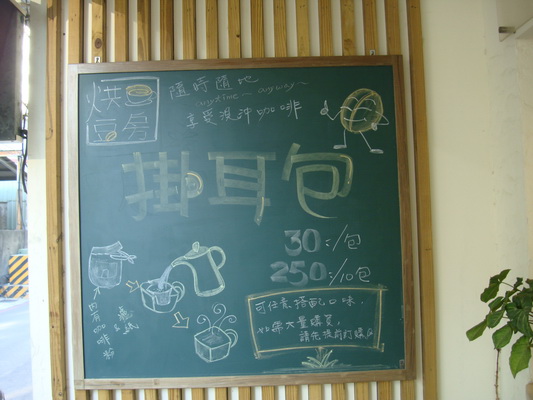 烘
豆房
隨時隨地
anytime~ anyway~
享受濾沖咖啡
掛耳包
30元/包
250元/10包
可任意搭配口味,
如需大量購買,
請先提前訂購
內有咖啡粉
濾紙